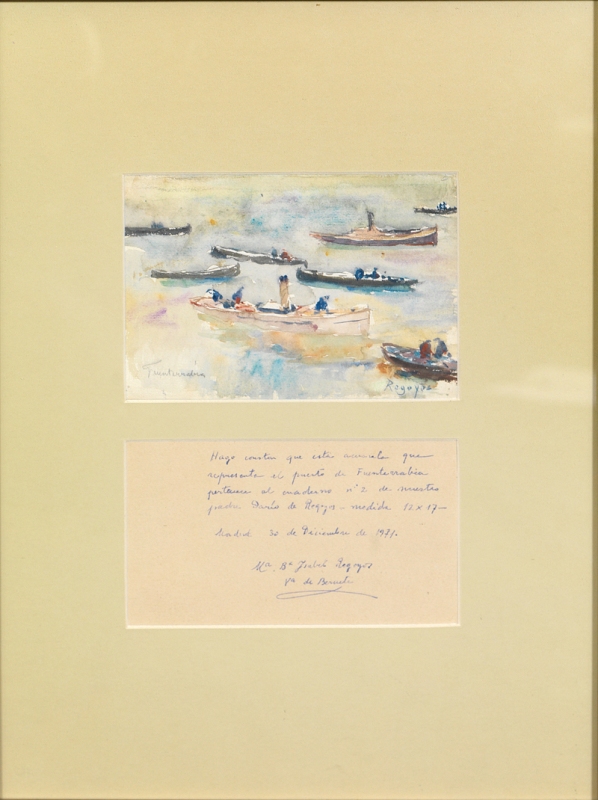 Fuenterrabía
Regoyos
Hago constar que esta acuarela que
representa el puerto de Fuenterrabía
pertenece al cuaderno nº 2 de nuestro
padre Darío de Regoyos – medida 12 x 17 –
Madrid 30 de Diciembre de 1971.
Mª Bª Regoyos
Vª de